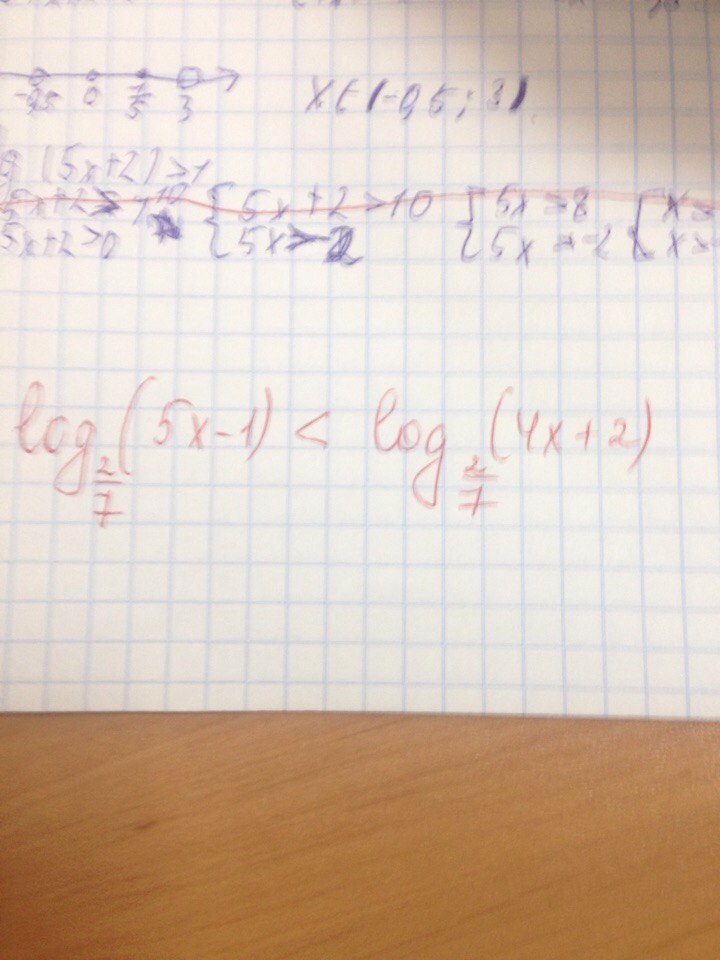 -0,5 0 1/5 3 x∈(-0,5; 3).
(5x+2)>1
5x+2>10 { 5x+2>10 { 5x>8 { x>
5x+2>0 { 5x>-2 { 5x>-2 { x>
log_{2/7}(5x-1) < log_{2/7}(4x+2)